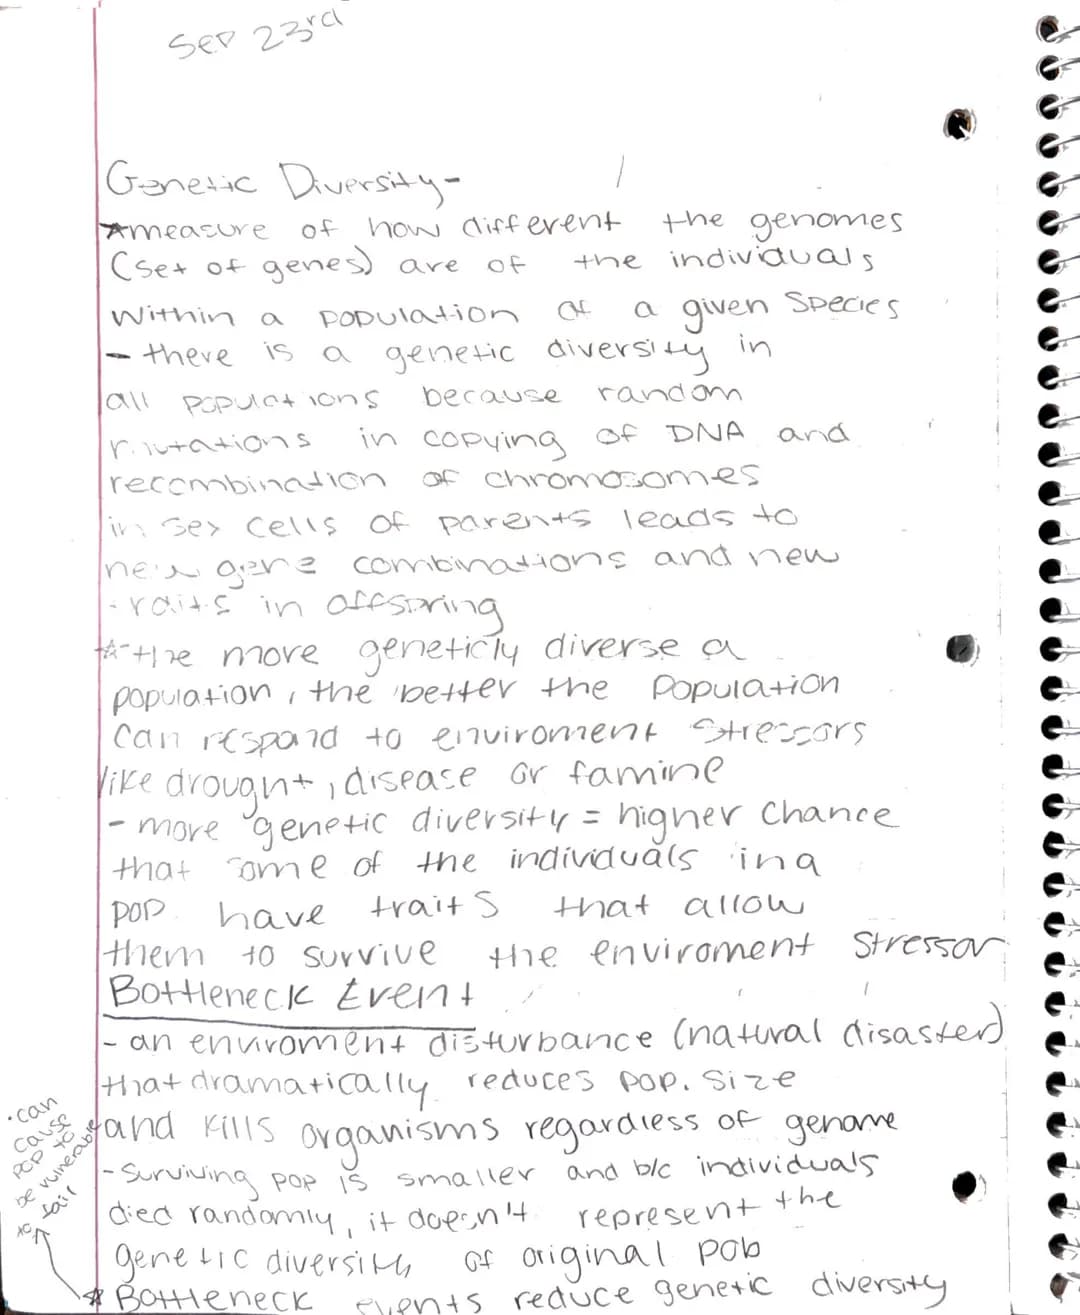 Sep 23rd
Genetic Diversity-
*measure of how different the genomes
(set of genes) are of the individuals
within a population of a given species
- there is a genetic diversity in
all populations because random
mutations in copying of DNA and
recombination of chromosomes
in sex cells of parents leads to
new gene combinations and new
traits in offspring
*-the more geneticly diverse a
population, the better the population
can respond to enviroment stressors
like drought, disease or famine
- more genetic diversity = higher chance
that some of the individuals in a
pop have traits that allow
them to survive the enviroment stressor
Bottleneck Event
- an enviroment disturbance (natural disaster)
that dramatically reduces pop. size
and kills organisms regardless of genome
- Surviving pop is smaller and b/c individuals
died randomly, it doesn't represent the
genetic diversity of original pop
* Bottleneck events reduce genetic diversity
• can
cause
pop to
be vulnerable
to fail